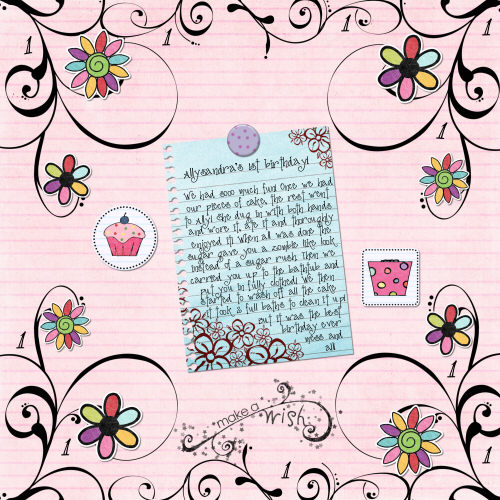 1 1
Allysandra's 1st birthday!
We had sooo much fun! Once we had
our pieces of cake, the rest went
to Ally! She dug in with both hands
and wore it, ate it and thoroughly
enjoyed it! When all was done the
sugar gave you a zombie like look
instead of a sugar rush. Then we
carried you up to the bathtub and
put you in fully clothed! We then
started to wash off all the cake
it took 3 full baths to clean it up!
but it was the best
birthday ever
mess and
all
make a wish
1 1
1 1